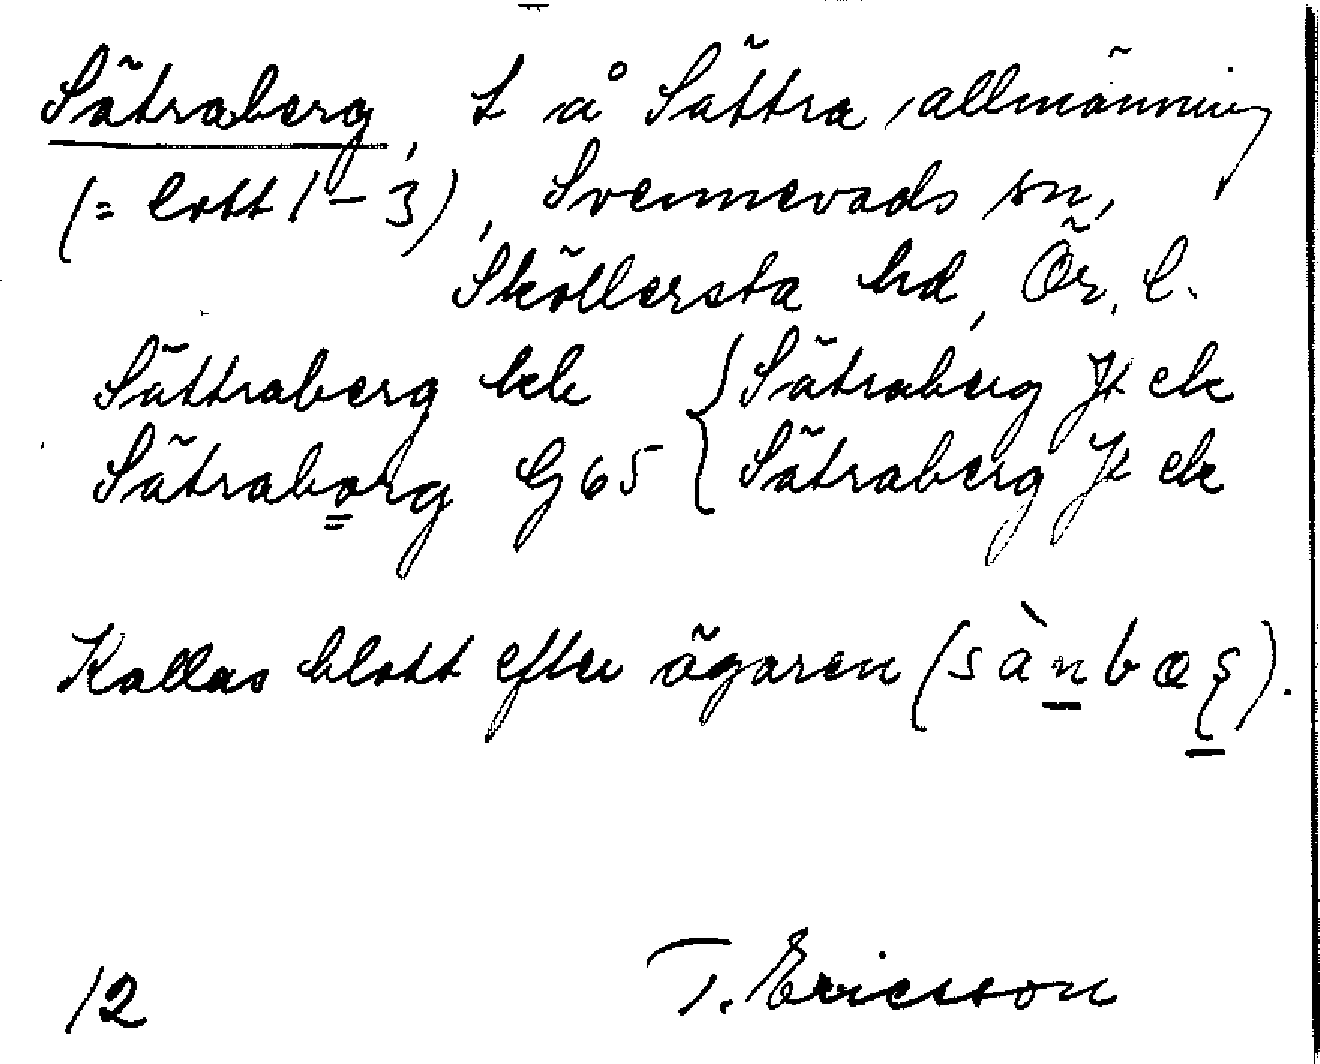 Sätraberg, t å Sättra allmänning
(= lott 1-3), Svennevads sn,
Sköllersta hd, Ör. l.
Sättraberg kb { Sätraberg Jt ek
Sätraborg G65 { Sätraberg Jt ek
Kallas blott efter ägaren (sànbæş).
12 T. Ericsson